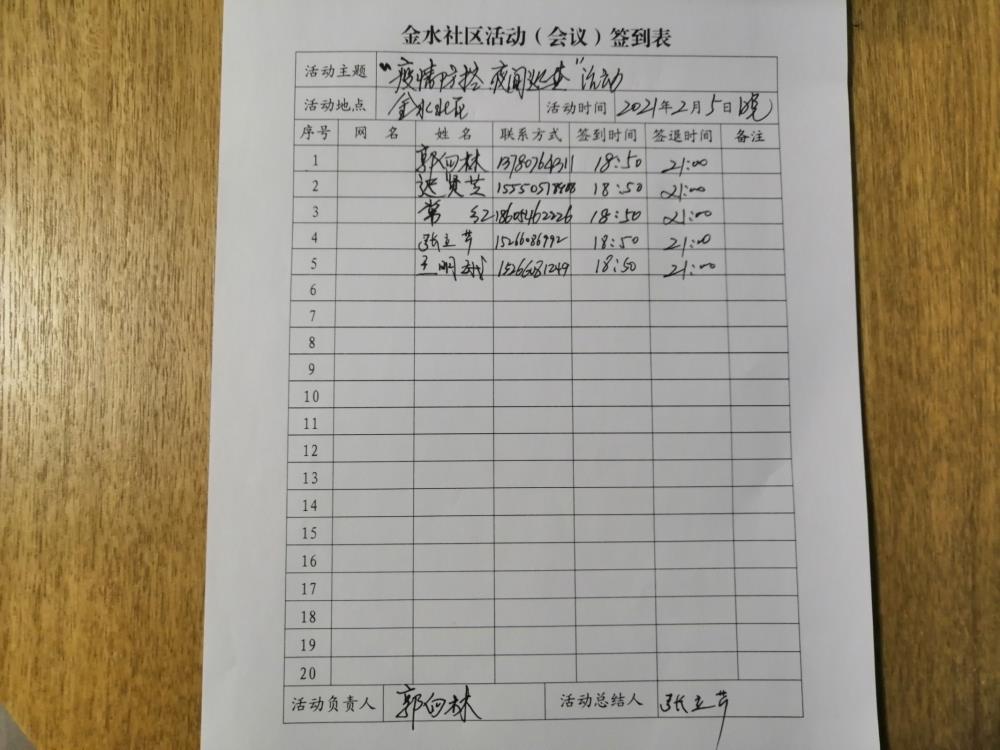 金水社区活动（会议）签到表
活动主题 “疫情防控 夜间巡查”活动
活动地点 金水社区 活动时间 2021年2月5日晚
序号 网 名 姓 名 联系方式 签到时间 签退时间 备注
1 郭向林 13780764311 18:50 21:00
2 张贤芝 18:50 21:00
3 常 红 18605462226 18:50 21:00
4 张立芹 1526686992 18:50 21:00
5 王明 15266081249 18:50 21:00
6
7
8
9
10
11
12
13
14
15
16
17
18
19
20
活动负责人 郭向林 活动总结人 张立芹